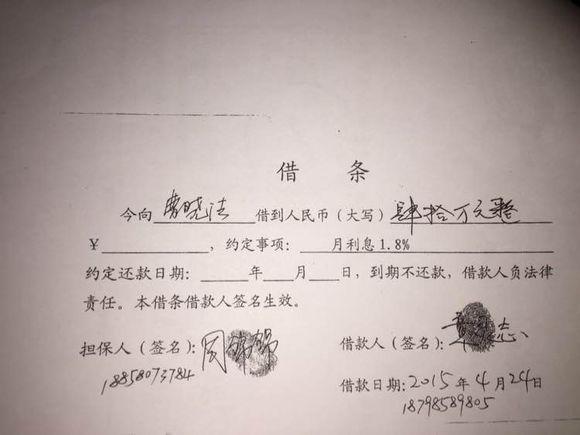 借 条
今向 曹晓法 借到人民币（大写）肆拾万元整
￥ ，约定事项： 月利息1.8%
约定还款日期： 年 月 日，到期不还款，借款人负法律
责任。本借条借款人签名生效。
担保人（签名）：周 借款人（签名）：章 志
18858073784 借款日期：2015年4月24日
18798589805